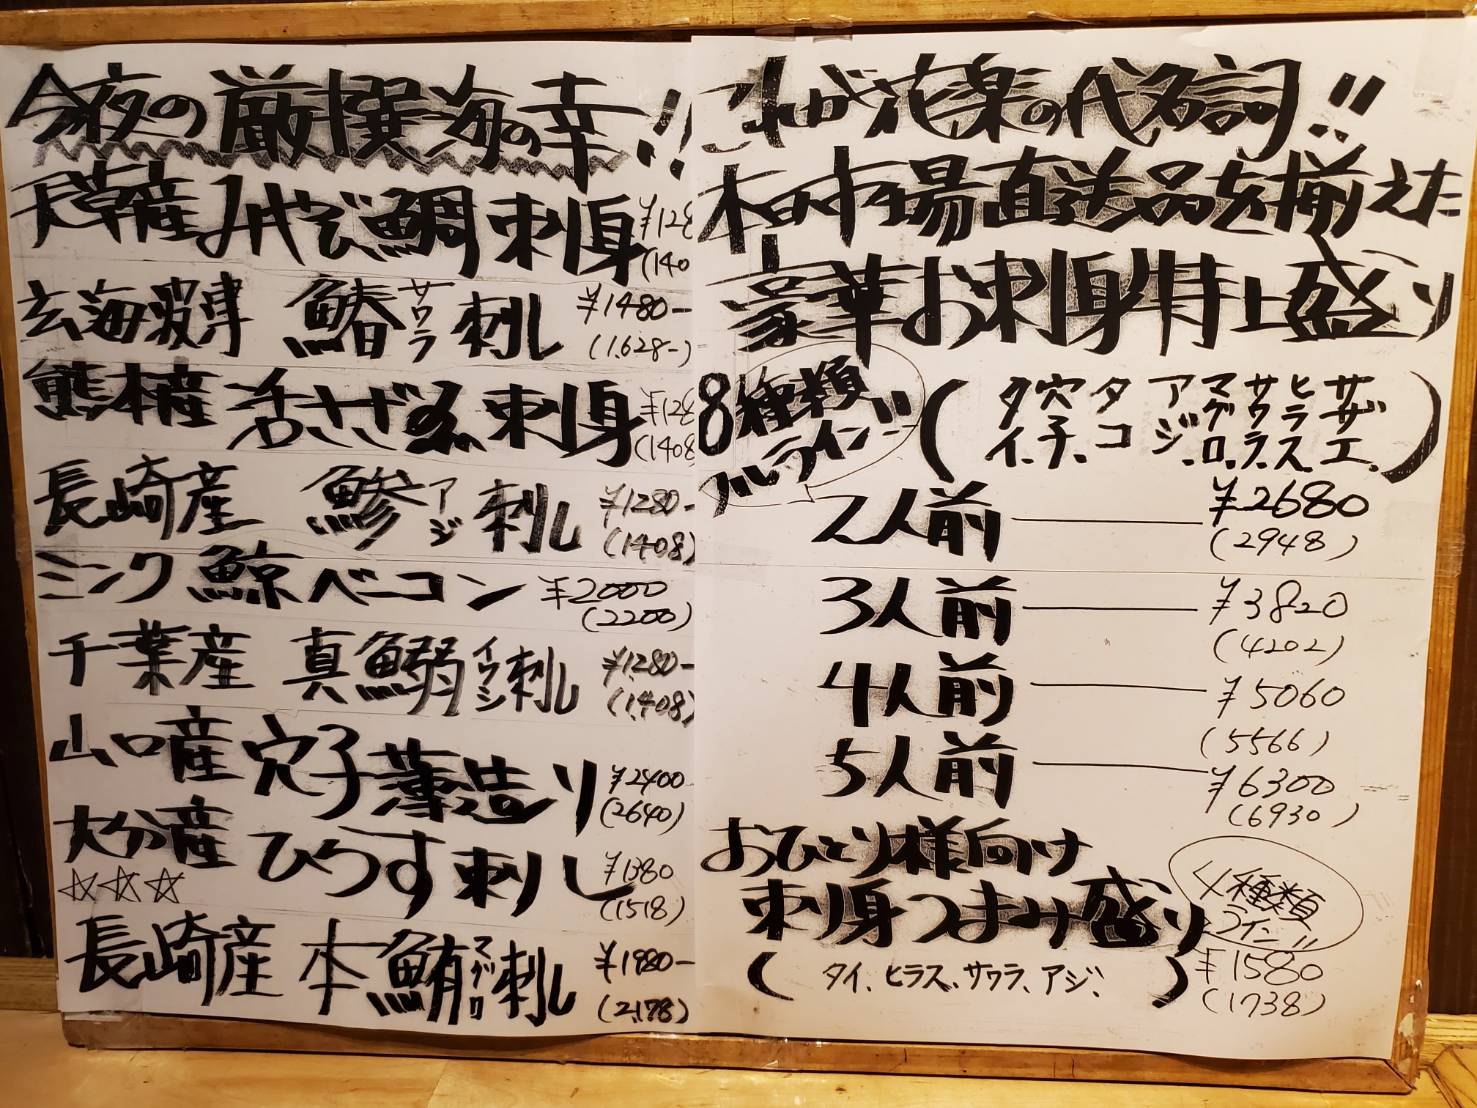 今夜の厳撰海の幸!!
天草産 みやび鯛刺身 ¥128
(140
玄海波津 鰆サワラ刺し ¥1480-
(1.628-)
熊本産 活さざえ刺身 ¥128
(1408
長崎産 鯵アジ刺し ¥1280-
(1408)
ミンク鯨ベーコン ¥2000
(2200)
千葉産 真鰯イワシ刺し ¥1280-
(1,408)
山口産 穴子薄造り ¥2400
(2640)
大分産 ひらす刺し ¥1380
(1518)
☆☆☆
長崎産 本鮪マグロ刺し ¥1980-
(2,178)
これが花楽の代名詞!!
本日市場直送品を揃えた
豪華お刺身特上盛り
8種類
フルライン!!
(タイ、穴子、タコ、アジ、マグロ、サワラ、ヒラス、サザエ、)
2人前 ¥2680
(2948)
3人前 ¥3820
(4202)
4人前 ¥5060
(5566)
5人前 ¥6300
(6930)
おひとり様向け
刺身つまみ盛り
4種類
(タイ、ヒラス、サワラ、アジ、)
¥1580
(1738)